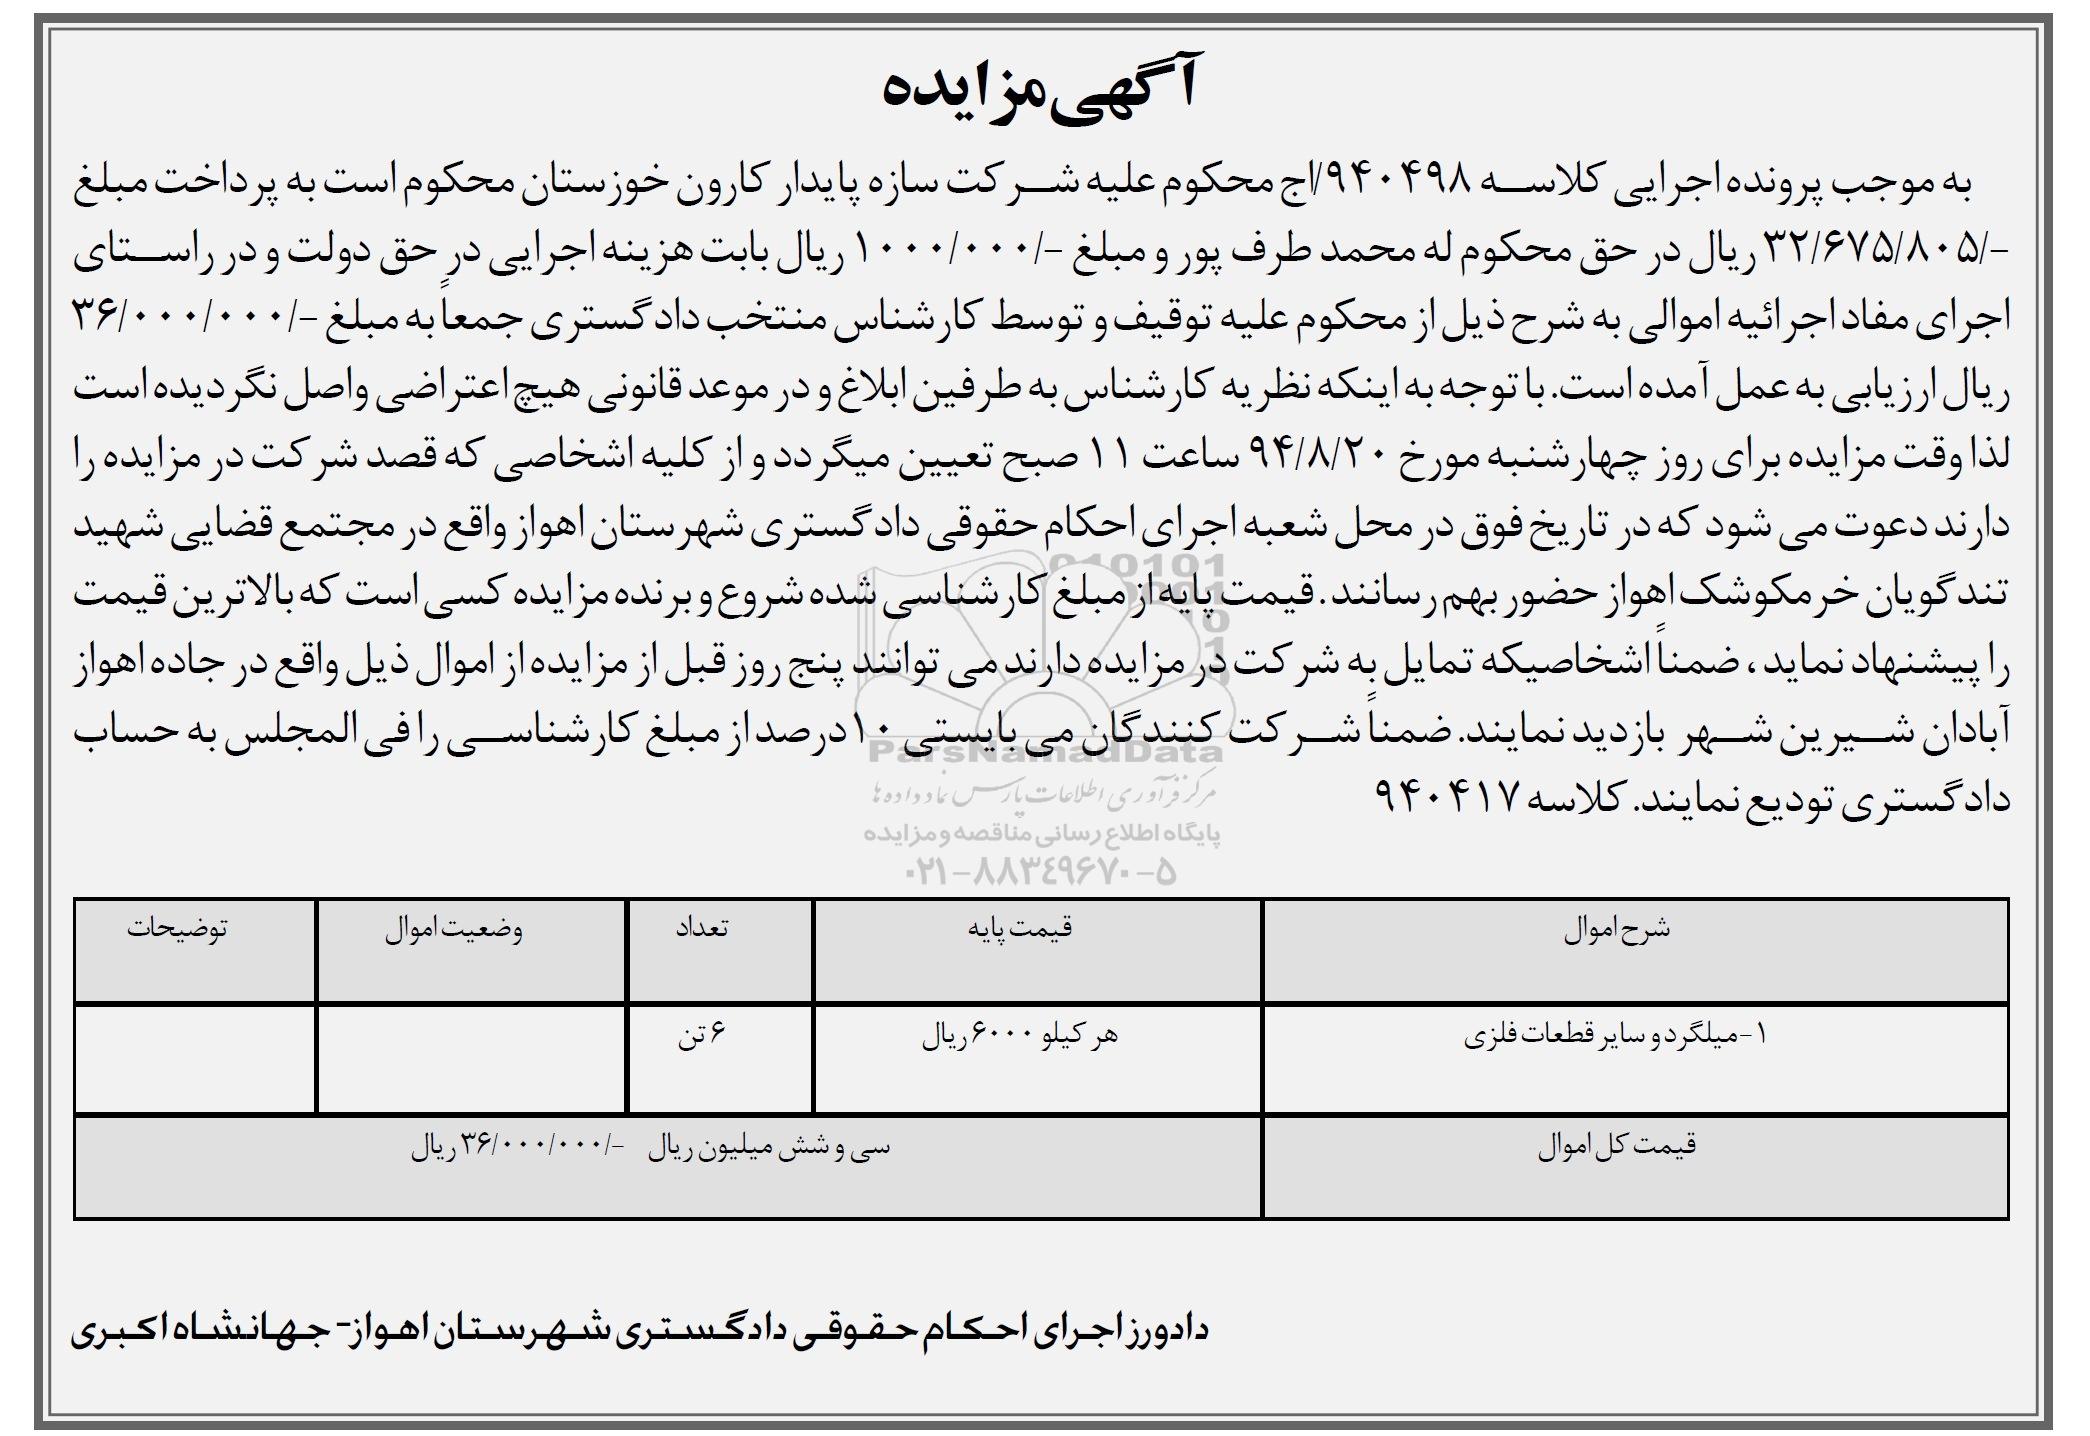 آگهی مزایده
به موجب پرونده اجرایی کلاسه ۹۴۰۴۹۸/اج محکوم علیه شرکت سازه پایدار کارون خوزستان محکوم است به پرداخت مبلغ
۳۲/۶۷۵/۸۰۵/- ریال در حق محکوم له محمد طرف پور و مبلغ ۱۰۰۰/۰۰۰/- ریال بابت هزینه اجرایی در حق دولت و در راستای
اجرای مفاد اجرائیه اموالی به شرح ذیل از محکوم علیه توقیف و توسط کارشناس منتخب دادگستری جمعاً به مبلغ ۳۶/۰۰۰/۰۰۰/-
ریال ارزیابی به عمل آمده است. با توجه به اینکه نظریه کارشناس به طرفین ابلاغ و در موعد قانونی هیچ اعتراضی واصل نگردیده است
لذا وقت مزایده برای روز چهارشنبه مورخ ۹۴/۸/۲۰ ساعت ۱۱ صبح تعیین میگردد و از کلیه اشخاصی که قصد شرکت در مزایده را
دارند دعوت می شود که در تاریخ فوق در محل شعبه اجرای احکام حقوقی دادگستری شهرستان اهواز واقع در مجتمع قضایی شهید
تندگویان خرمکوشک اهواز حضور بهم رسانند. قیمت پایه از مبلغ کارشناسی شده شروع و برنده مزایده کسی است که بالاترین قیمت
را پیشنهاد نماید، ضمناً اشخاصیکه تمایل به شرکت در مزایده دارند می توانند پنج روز قبل از مزایده از اموال ذیل واقع در جاده اهواز
آبادان شیرین شهر بازدید نمایند. ضمناً شرکت کنندگان می بایستی ۱۰درصد از مبلغ کارشناسی را فی المجلس به حساب
دادگستری تودیع نمایند. کلاسه ۹۴۰۴۱۷
ParsNamadData
مرکز فرآوری اطلاعات پارس نماد داده ها
پایگاه اطلاع رسانی مناقصه و مزایده
۰۲۱-۸۸۳۴۹۶۷۰-۵
شرح اموال قیمت پایه تعداد وضعیت اموال توضیحات
۱-میلگرد و سایر قطعات فلزی هر کیلو ۶۰۰۰ ریال ۶ تن
قیمت کل اموال سی و شش میلیون ریال ۳۶/۰۰۰/۰۰۰/- ریال
دادورز اجرای احکام حقوقی دادگستری شهرستان اهواز- جهانشاه اکبری